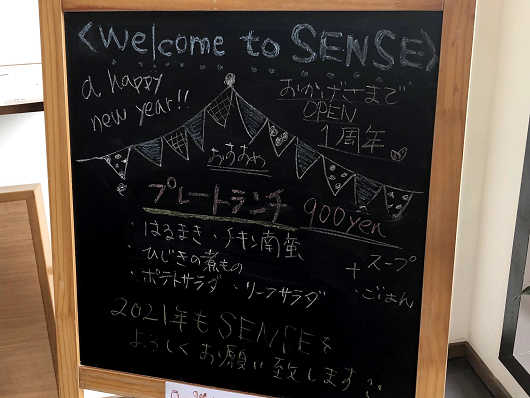 〈Welcome to SENSE〉
a happy
new year!!
おかげさまで
OPEN
1周年
おすすめ
プレートランチ 900yen
・はるまき ・チキン南蛮
・ひじきの煮もの
・ポテトサラダ ・リーフサラダ
+ スープ
・ごはん
2021年もSENSEを
よろしくお願い致します